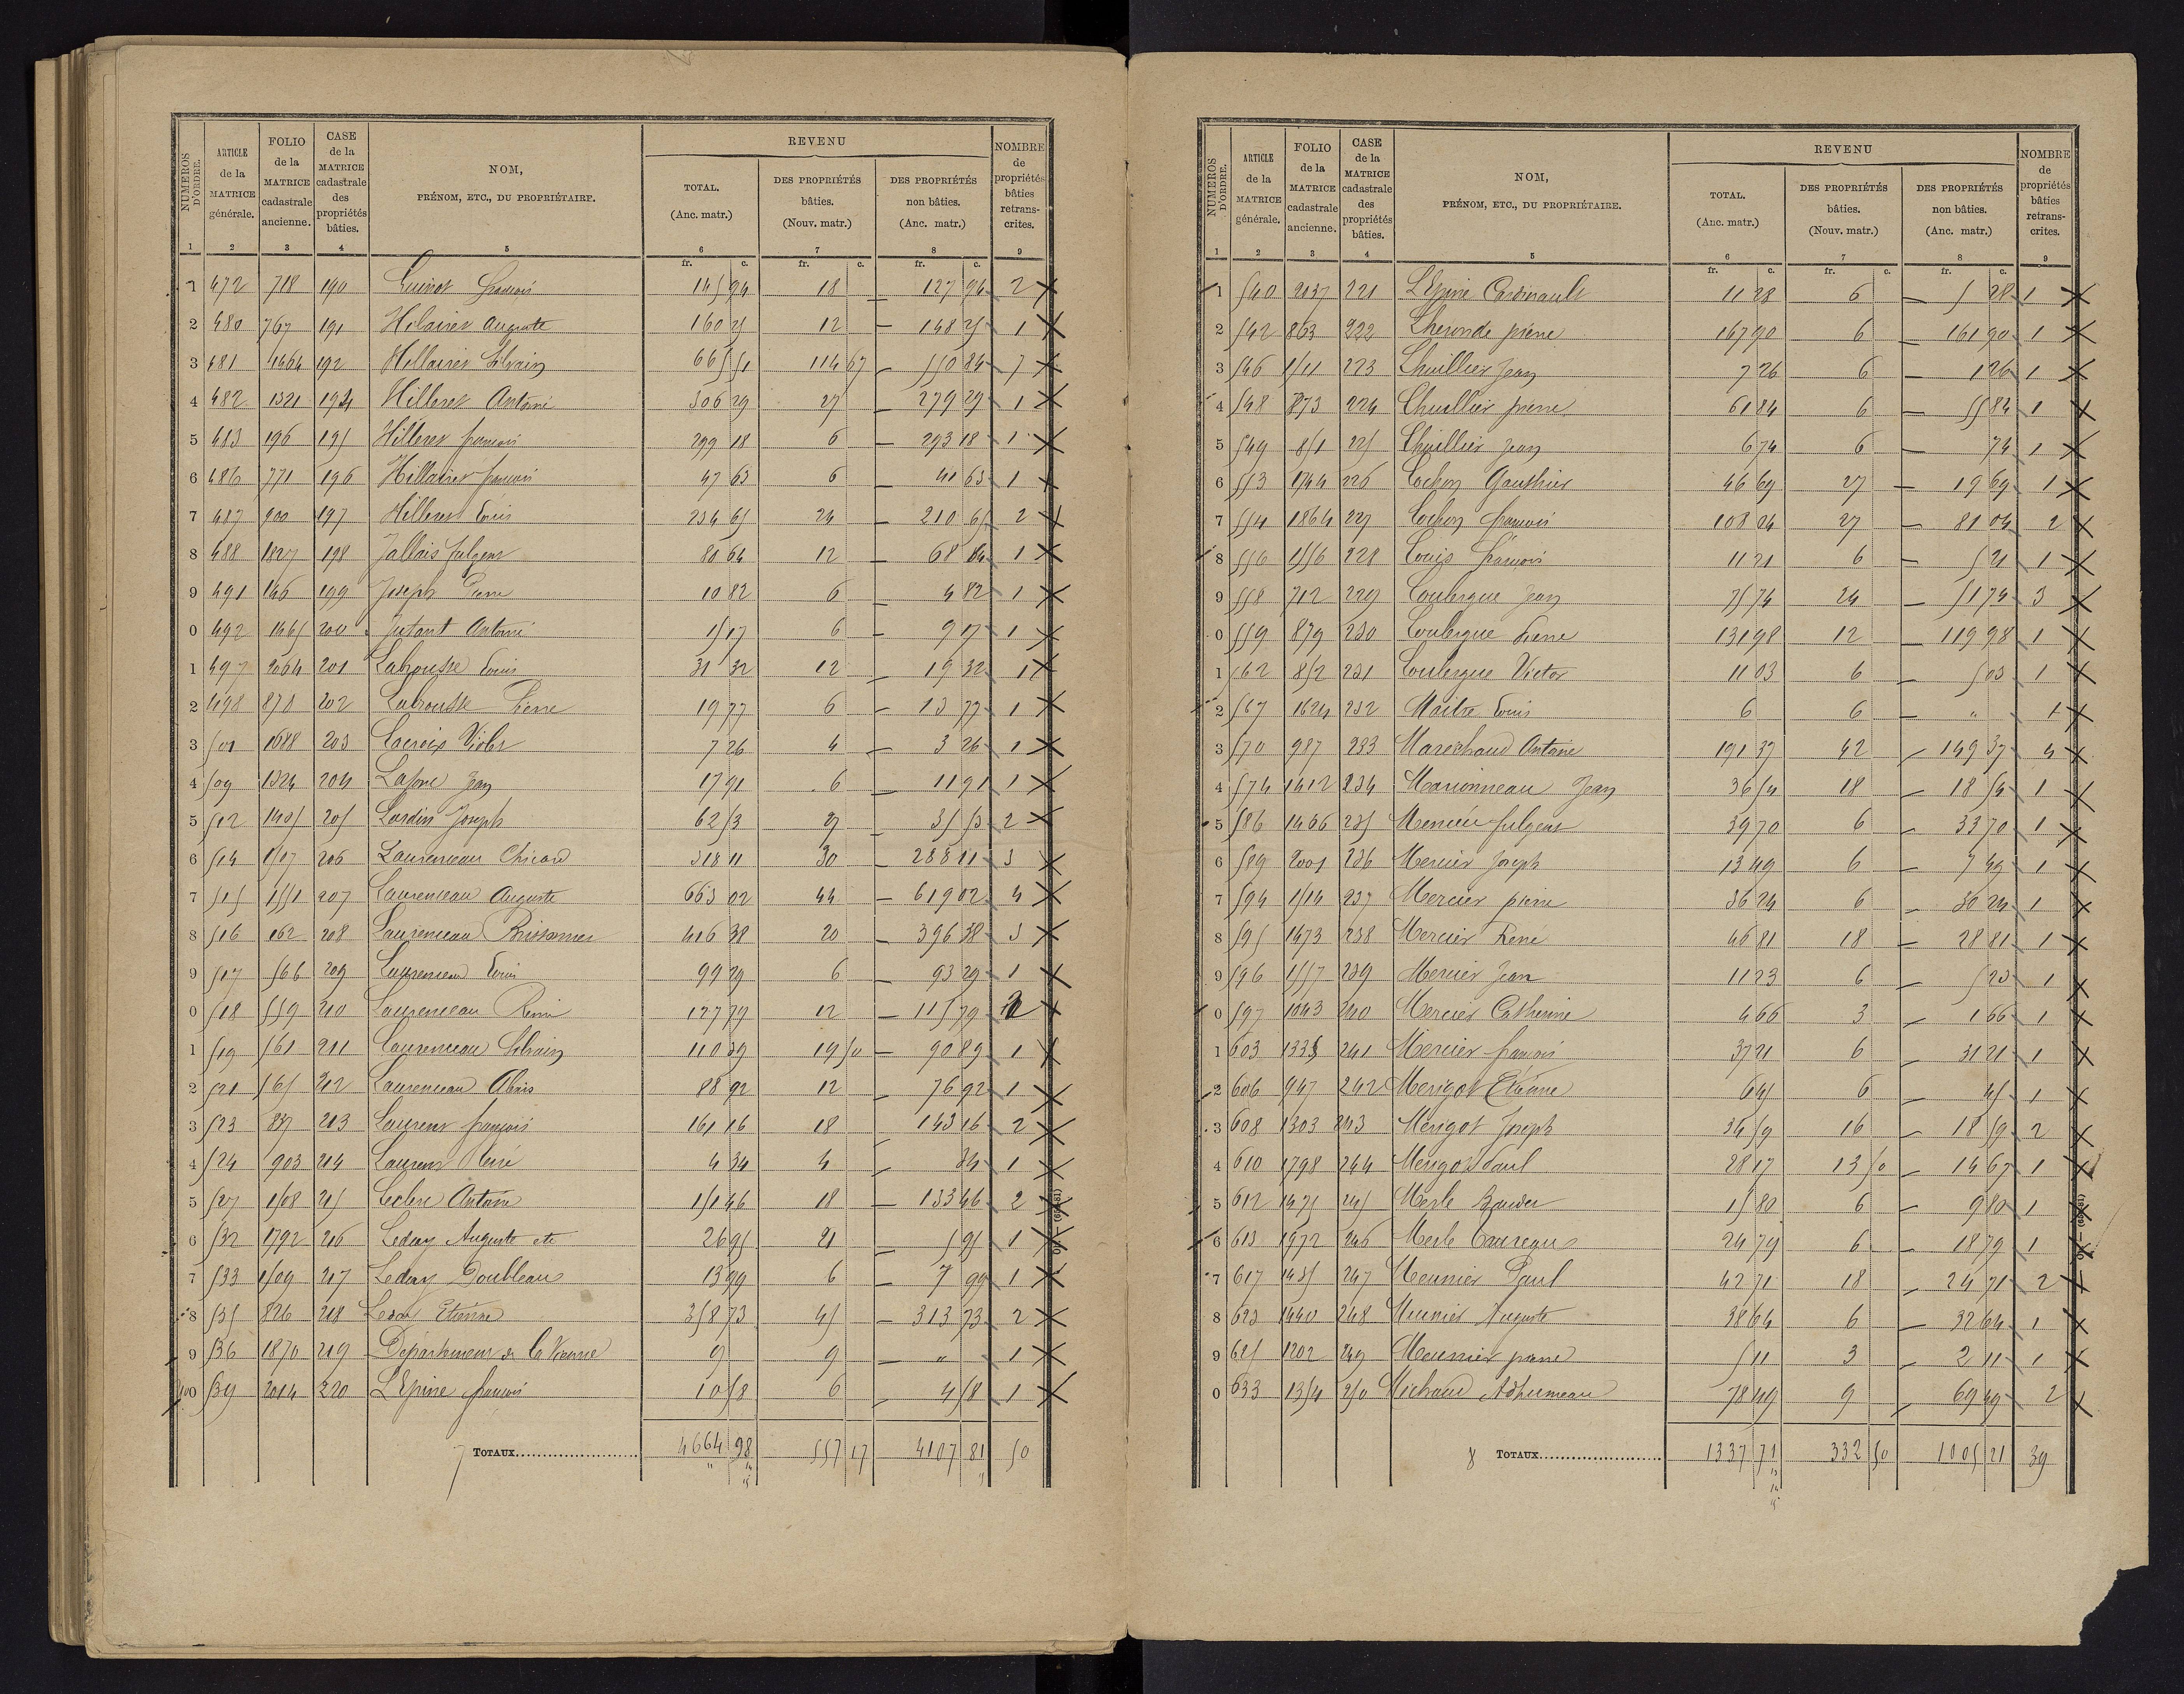 NUMÉROS D'ORDRE. | ARTICLE de la MATRICE générale. | FOLIO de la MATRICE cadastrale ancienne. | CASE de la MATRICE cadastrale des propriétés bâties. | NOM, PRÉNOM, ETC., DU PROPRIÉTAIRE. | REVENU | NOMBRE de propriétés bâties retranscrites.
TOTAL. (Anc. matr.) | DES PROPRIÉTÉS bâties. (Nouv. matr.) | DES PROPRIÉTÉS non bâties. (Anc. matr.)
1 2 3 4 5 6 7 8 9
fr. c. fr. c. fr. c.
1 472 718 190 Guinot françois 145 94 18 127 94 2 X
2 480 767 191 Hilairet Auguste 160 25 12 — 148 25 1 X
3 481 1464 192 Hillairet Silvain 665 51 114 67 — 550 84 7 X
4 482 1321 194 Hilleret Antoine 306 29 27 — 279 29 1 X
5 483 196 195 Hilleret françois 299 18 6 — 293 18 1 X
6 486 771 196 Hillairet françois 47 63 6 — 41 63 1 X
7 487 900 197 Hilleret Louis 234 65 24 — 210 65 2 X
8 488 1827 198 Jallais fulgent 80 64 12 — 68 64 1 X
9 491 146 199 Joseph Pierre 10 82 6 — 4 82 1 X
0 492 1465 200 Jutant Antoine 15 17 6 — 9 17 1 X
1 497 2064 201 Labrousse Louis 31 32 12 — 19 32 1 X
2 498 870 202 Labrousse Pierre 19 77 6 — 13 77 1 X
3 501 1688 203 Lacroix Victor 7 26 4 — 3 26 1 X
4 509 1324 204 Lafone Jean 17 91 6 — 11 91 1 X
5 512 1405 205 Lardin Joseph 62 53 27 — 35 53 2 X
6 514 1517 206 Laurenceau Chicard 318 11 30 — 288 11 3 X
7 515 1551 207 Laurenceau Auguste 663 02 44 — 619 02 4 X
8 516 162 208 Laurenceau Brissonnet 416 38 20 — 396 38 3 X
9 517 566 209 Laurenceau Louis 99 29 6 — 93 29 1 X
0 518 559 210 Laurenceau Rémi 127 79 12 — 115 79 2 X
1 519 561 211 Laurenceau Silvain 110 39 19 50 — 90 89 1 X
2 521 565 212 Laurenceau Alexis 88 92 12 — 76 92 1 X
3 523 837 213 Laurent françois 161 16 18 — 143 16 2 X
4 524 903 214 Laurent René 4 34 4 — 34 1 X
5 527 1508 215 Leclerc Antoine 151 46 18 — 133 46 2 X
6 532 1792 216 Leday Auguste etc 26 95 21 — 5 95 1 X
7 533 1509 217 Leday Doubleau 13 99 6 — 7 99 1 X
8 535 826 218 Leday Etienne 358 73 45 — 313 73 2 X
9 536 1870 219 Département de la Vienne 9 9 — " 1 X
200 539 2014 220 L'Epine françois 10 58 6 — 4 58 1 X
7 TOTAUX 4664 98 557 17 4107 81 50
NUMÉROS D'ORDRE. | ARTICLE de la MATRICE générale. | FOLIO de la MATRICE cadastrale ancienne. | CASE de la MATRICE cadastrale des propriétés bâties. | NOM, PRÉNOM, ETC., DU PROPRIÉTAIRE. | REVENU | NOMBRE de propriétés bâties retranscrites.
TOTAL. (Anc. matr.) | DES PROPRIÉTÉS bâties. (Nouv. matr.) | DES PROPRIÉTÉS non bâties. (Anc. matr.)
1 2 3 4 5 6 7 8 9
fr. c. fr. c. fr. c.
1 540 2037 221 L'Epine Cardinault 11 28 6 — 5 28 1 X
2 542 863 222 Lheronde pierre 167 90 6 — 161 90 1 X
3 546 1511 223 Lhuillier Jean 7 26 6 — 1 26 1 X
4 548 873 224 Lhuillier pierre 61 84 6 — 55 84 1 X
5 549 851 225 Lhuillier Jean 6 74 6 — 74 1 X
6 553 1744 226 Lochon Gauthier 46 69 27 — 19 69 1 X
7 554 1864 227 Lochon françois 108 04 27 — 81 04 2 X
8 556 1556 228 Louis françois 11 21 6 — 5 21 1 X
9 558 712 229 Loubergue Jean 75 74 24 — 51 74 3 X
0 559 879 230 Loubergue Pierre 131 98 12 — 119 98 1 X
1 562 852 231 Loubergue Victor 11 03 6 — 5 03 1 X
2 567 1624 232 Maitre Louis 6 6 — " 1 X
3 570 987 233 Marechaud Antoine 191 37 42 — 149 37 4 X
4 574 1412 234 Marionneau Jean 36 54 18 — 18 54 1 X
5 586 1466 235 Mercier fulgent 39 70 6 — 33 70 1 X
6 589 2001 236 Mercier Joseph 13 49 6 — 7 49 1 X
7 594 1514 237 Mercier pierre 36 24 6 — 30 24 1 X
8 595 1473 238 Mercier René 46 81 18 — 28 81 1 X
9 596 1557 239 Mercier Jean 11 23 6 — 5 23 1 X
0 597 1043 240 Mercier Catherine 4 66 3 — 1 66 1 X
1 603 1335 241 Mercier françois 37 21 6 — 31 21 1 X
2 606 947 242 Merigot Etienne 6 45 6 — 45 1 X
3 608 1303 243 Merigot Joseph 34 59 16 — 18 59 2 X
4 610 1798 244 Merigot Paul 28 17 13 50 — 14 67 1 X
5 612 1475 245 Merle 15 80 6 — 9 80 1 X
6 613 1972 246 Merle 24 79 6 — 18 79 1 X
7 617 1435 247 Meunier Paul 42 71 18 — 24 71 2 X
8 623 1440 248 Meunier Auguste 38 64 6 — 32 64 1 X
9 625 1202 249 Meunier pierre 5 11 3 — 2 11 1 X
0 633 1354 250 Michaud Adhumeau 78 49 9 — 69 49 2 X
8 TOTAUX 1337 71 332 50 1005 21 39